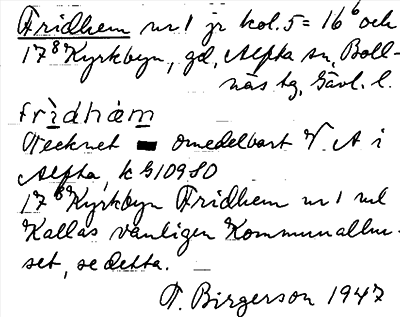 Fridhem nr 1 jr kol. 5 = 16⁶ och
17⁸ Kyrkbyn, gd, Alfta sn, Boll-
näs tg, Gävl. l.
fridhàm
Tecknet ▬ omedelbart V. A i
Alfta, k G 10980
17⁸ Kyrkbyn Fridhem nr 1 ml
Kallas vanligen Kommunalhu-
set, se detta.
T. Birgerson 1947